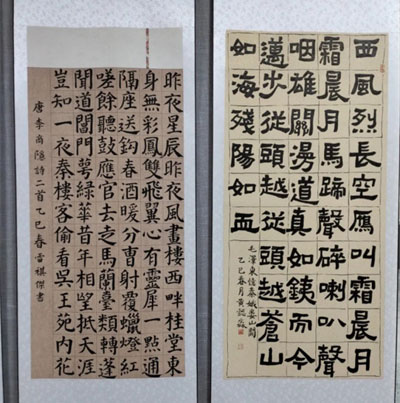 昨夜星辰昨夜風畫樓西畔桂堂東
身無彩鳳雙飛翼心有靈犀一點通
隔座送鈎春酒暖分曹射覆蠟燈紅
嗟餘聽鼓應官去走馬蘭臺類轉蓬
聞道閶門萼綠華昔年相望抵天涯
豈知一夜秦樓客偷看吳王苑內花
唐李商隱詩二首乙巳春雷祺傑書
西風烈長空雁叫霜晨月
霜晨月馬蹄聲碎喇叭聲
咽雄關漫道真如鐵而今
邁步從頭越從頭越蒼山
如海殘陽如血
毛澤東憶秦娥婁山關
乙巳春月黃